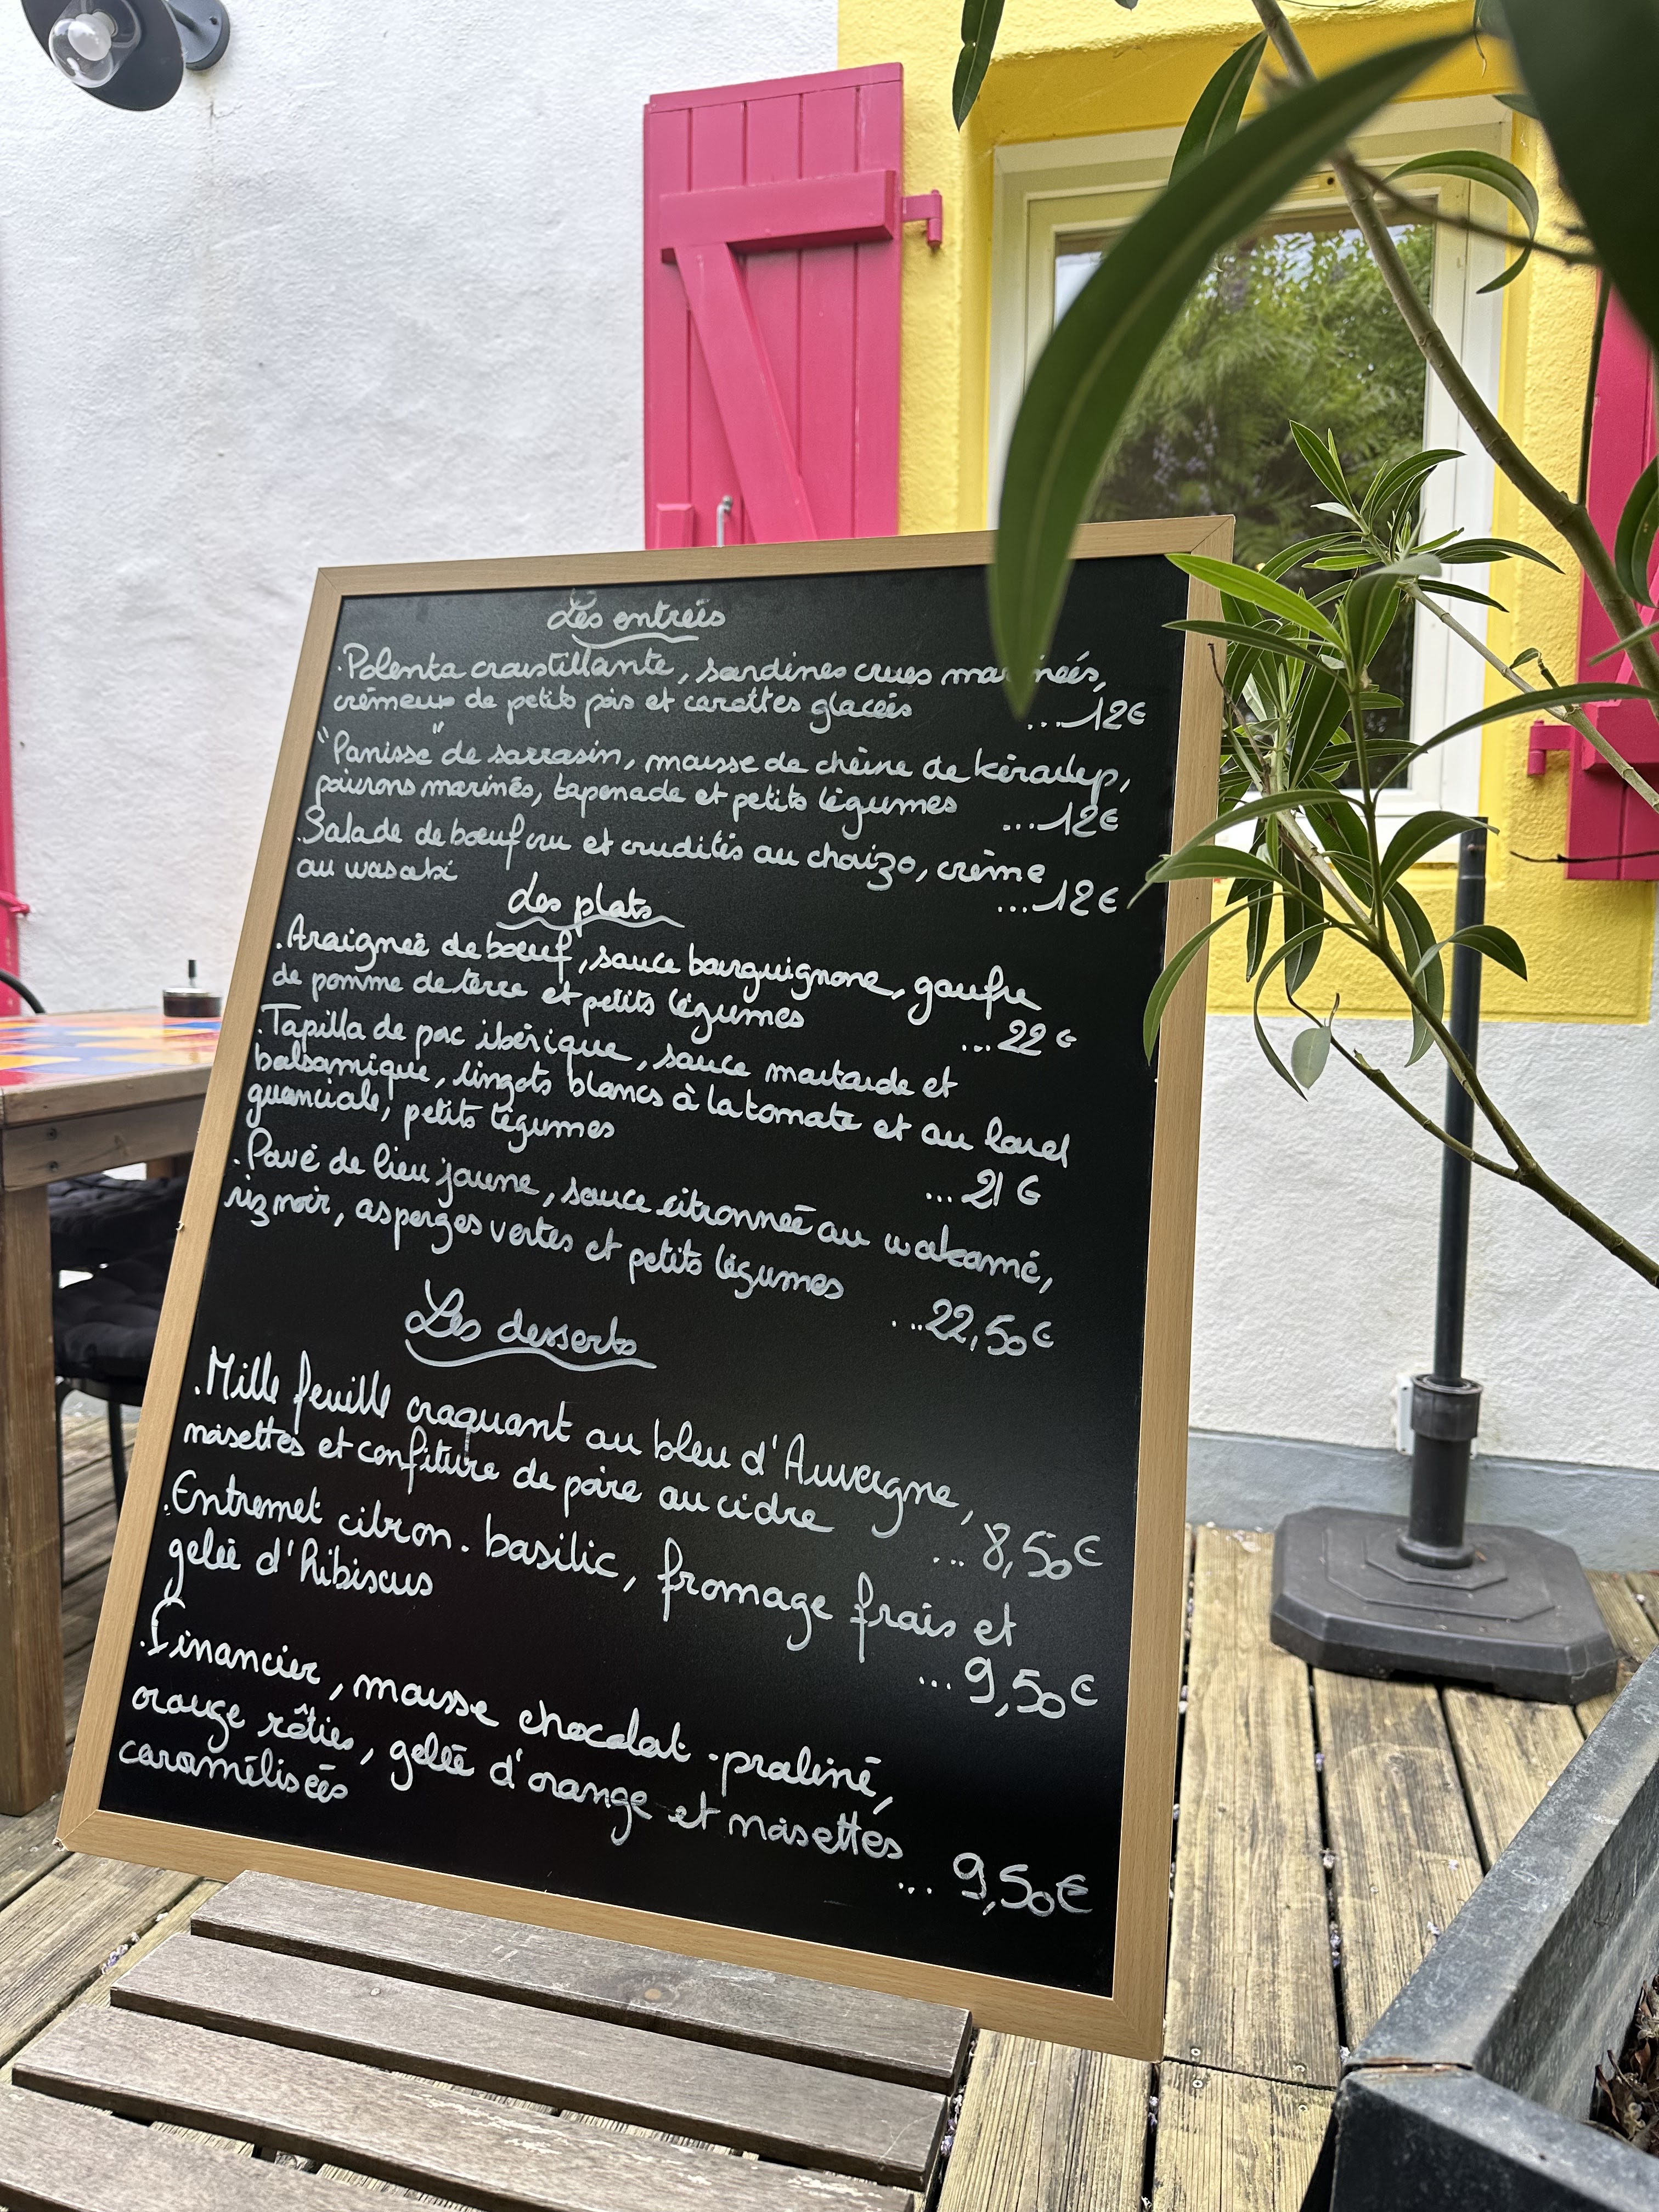 Les entrées
.Polenta croustillante, sardines crues marinées,
crémeux de petits pois et carottes glacées
...12€
"Panisse" de sarrasin, mousse de chèvre de
poivrons marinés, tapenade et petits légumes
...12€
.Salade de bœuf cru et crudités au chorizo, crème
au wasabi
...12€
Les plats
.Araignée de bœuf, sauce bourguignone, gaufre
de pomme de terre et petits légumes
...22€
.Tapilla de porc ibérique, sauce moutarde et
balsamique, lingots blancs à la tomate et au lard
guanciale, petits légumes
...21€
.Pavé de lieu jaune, sauce citronnée au wakamé,
riz noir, asperges vertes et petits légumes
...22,50€
Les desserts
.Mille feuille craquant au bleu d'Auvergne,
noisettes et confiture de poire au cidre
...8,50€
.Entremet citron-basilic, fromage frais et
gelée d'hibiscus
...9,50€
.Financier, mousse chocolat-praliné,
orange rôtie, gelée d'orange et noisettes
caramélisées
...9,50€